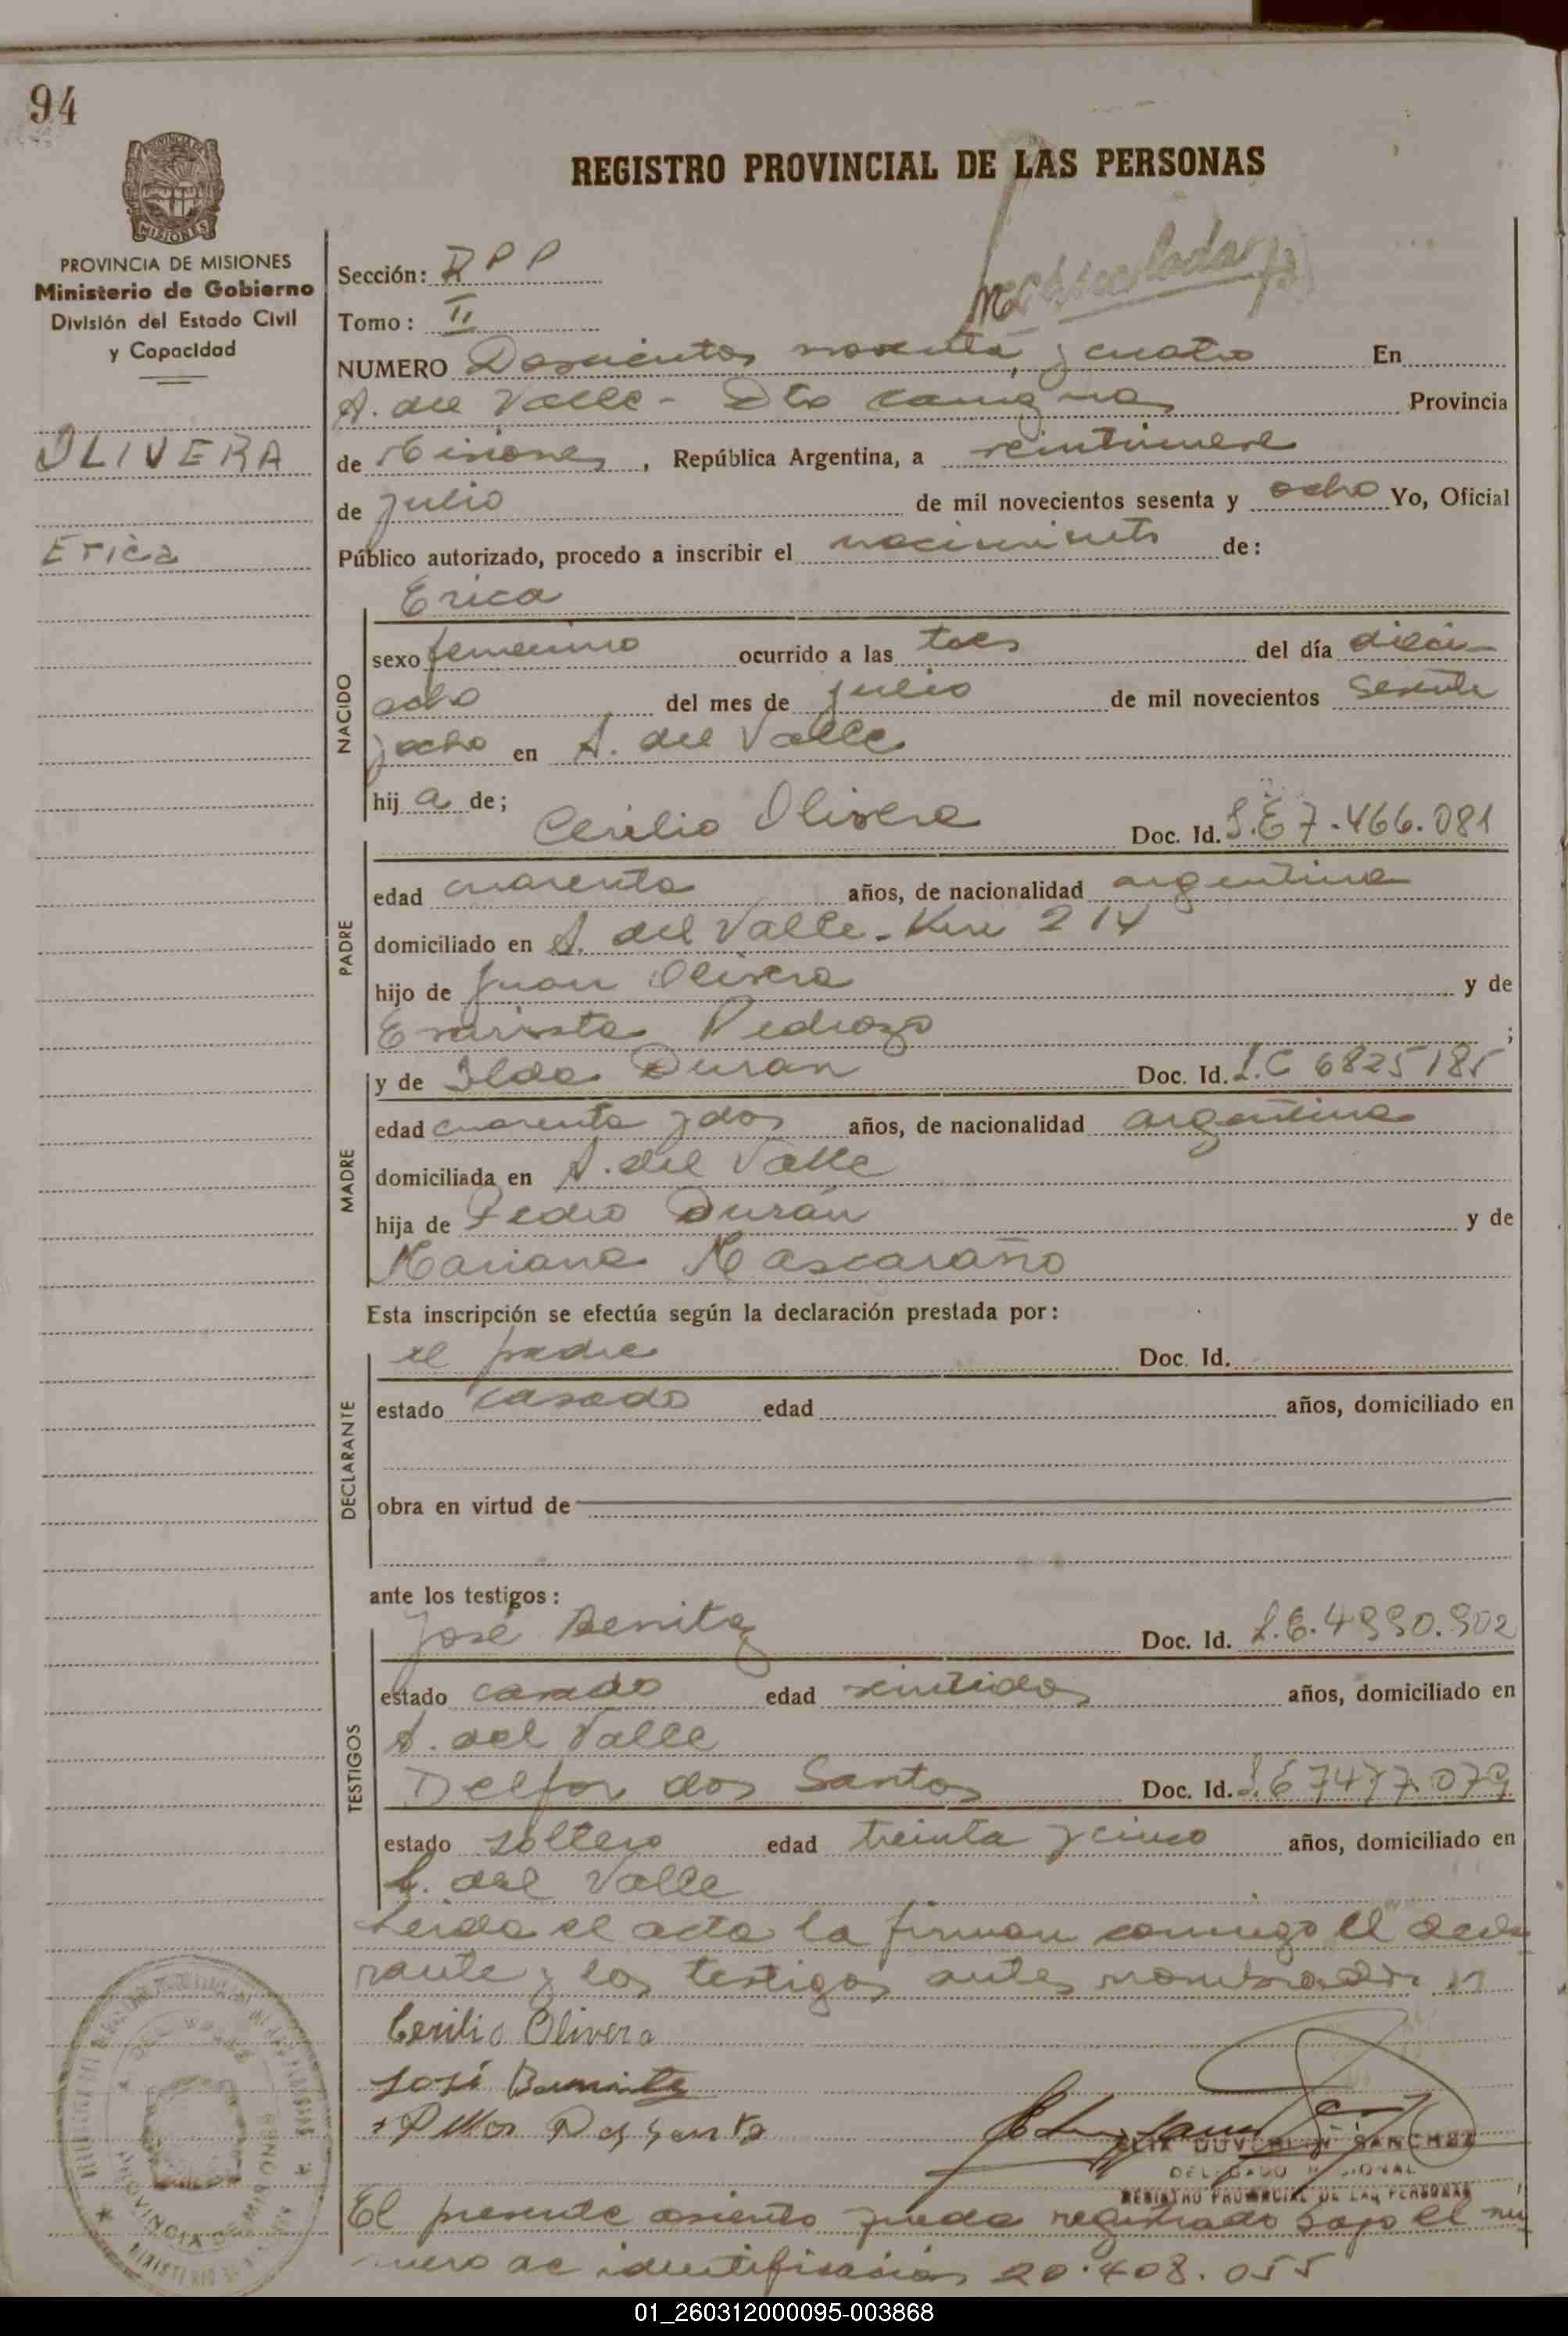 94
REGISTRO PROVINCIAL DE LAS PERSONAS
PROVINCIA DE MISIONES
Ministerio de Gobierno
División del Estado Civil
y Capacidad
OLIVERA
Erica
Sección: RPP
Tomo: II
NUMERO Doscientos noventa y cuatro En
A. del Valle - Dto Cainguas Provincia
de Misiones, República Argentina, a veintinueve
de julio de mil novecientos sesenta y ocho Yo, Oficial
Público autorizado, procedo a inscribir el nacimiento de:
Erica
NACIDO
sexo femenino ocurrido a las tres del día dieci-
ocho del mes de julio de mil novecientos sesenta
y ocho en A. del Valle
hij a de;
Cerilio Olivera Doc. Id. L.E 7.466.081
PADRE
edad cuarenta años, de nacionalidad argentina
domiciliado en A. del Valle - Km 214
hijo de Juan Olivera y de
Evarista Pedrozo ;
y de Ilda Duran Doc. Id. L.C 6825185
MADRE
edad cuarenta y dos años, de nacionalidad argentina
domiciliada en A. del Valle
hija de Pedro Durán y de
Mariana Mascaraño
Esta inscripción se efectúa según la declaración prestada por:
el padre Doc. Id.
DECLARANTE
estado casado edad años, domiciliado en
obra en virtud de
ante los testigos:
José Benitez Doc. Id. L.E. 4990.902
TESTIGOS
estado casado edad veintidos años, domiciliado en
A. del Valle
Delfor dos Santos Doc. Id. L.E 7477.079
estado soltero edad treinta y cinco años, domiciliado en
A. del Valle
Leida el acta la firman conmigo el decla
rante y los testigos antes nombrados
Cerilio Olivera
José Benitez
DELEGADO REGIONAL
REGISTRO PROVINCIAL DE LAS PERSONAS
El presente asiento queda registrado bajo el nú
mero de identificación 20.408.055
01_260312000095-003868